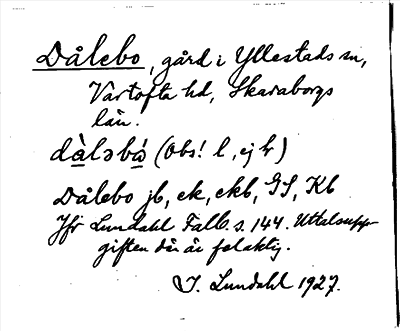 Dålebo, gård i Yllestads sn,
Vartofta hd, Skaraborgs
län.
dàləbò (Obs! l, ej ł)
Dålebo jb, ek, ekb, GS, Kb
Jfr Lundahl Falb. s. 144. Uttalsupp-
giften där är felaktig.
I. Lundahl 1927.